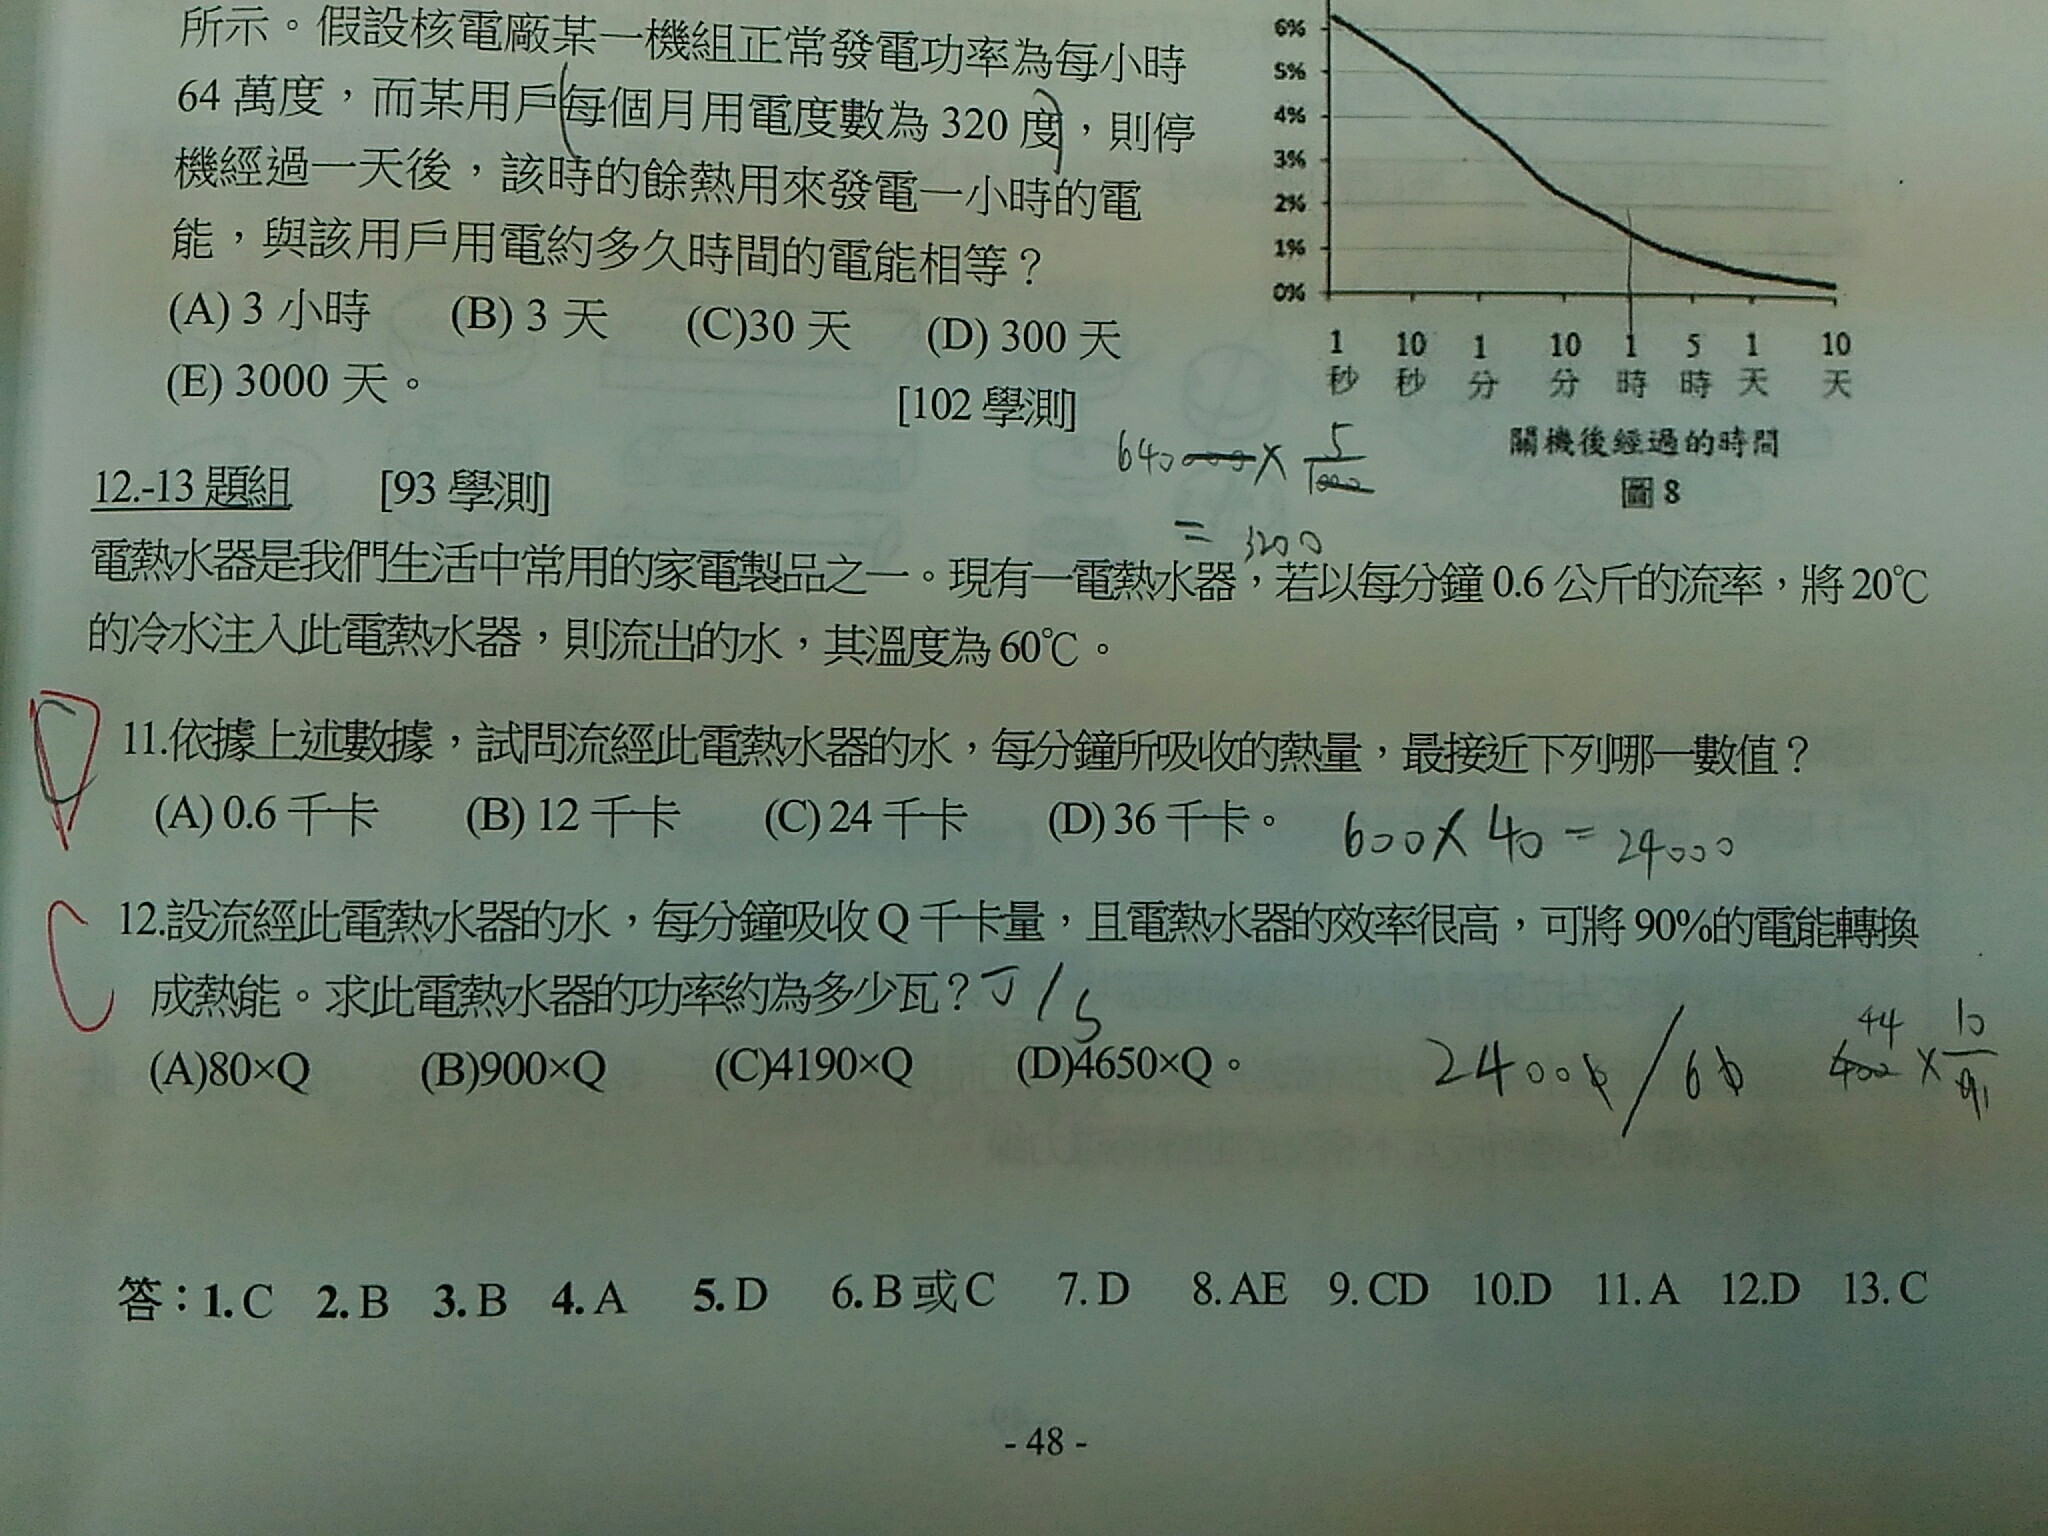 所示。假設核電廠某一機組正常發電功率為每小時
64 萬度，而某用戶每個月用電度數為 320 度，則停
機經過一天後，該時的餘熱用來發電一小時的電
能，與該用戶用電約多久時間的電能相等？
(A) 3 小時 (B) 3 天 (C)30 天 (D) 300 天
(E) 3000 天。 [102 學測]
6%
5%
4%
3%
2%
1%
0%
1 10 1 10 1 5 1 10
秒 秒 分 分 時 時 天 天
關機後經過的時間
圖 8
640000 × 5/1000
= 3200
12.-13 題組 [93 學測]
電熱水器是我們生活中常用的家電製品之一。現有一電熱水器，若以每分鐘 0.6 公斤的流率，將 20℃
的冷水注入此電熱水器，則流出的水，其溫度為 60℃。
11.依據上述數據，試問流經此電熱水器的水，每分鐘所吸收的熱量，最接近下列哪一數值？
(A) 0.6 千卡 (B) 12 千卡 (C) 24 千卡 (D) 36 千卡。 600×40=24000
C 12.設流經此電熱水器的水，每分鐘吸收 Q 千卡量，且電熱水器的效率很高，可將 90%的電能轉換
成熱能。求此電熱水器的功率約為多少瓦？ J/s
(A)80×Q (B)900×Q (C)4190×Q (D)4650×Q。 24000/60 44 400 × 10/9
答：1. C 2. B 3. B 4. A 5. D 6. B 或 C 7. D 8. AE 9. CD 10.D 11. A 12.D 13. C
- 48 -